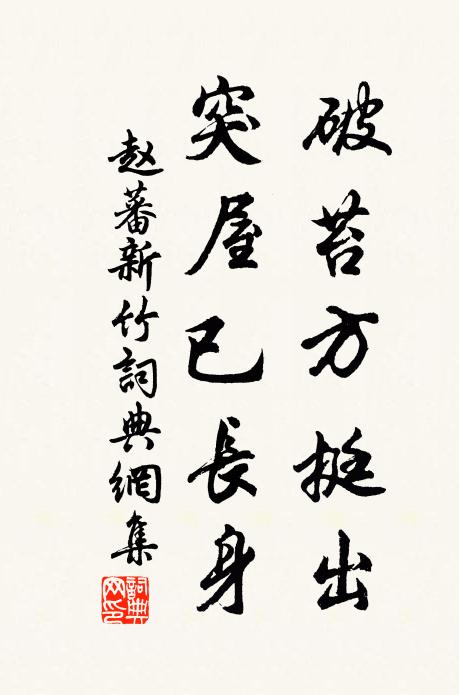 破苔方挺出
突屋已長身
赵蕃新竹詞典網集
詞典网印